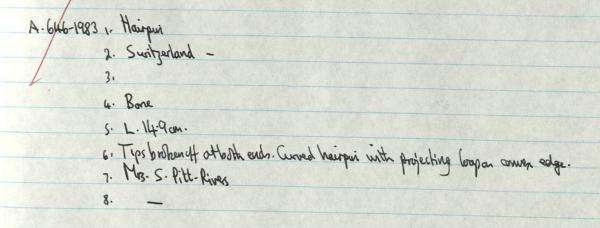 A.646-1983 1. Hairpin
2. Switzerland –
3.
4. Bone
5. L. 14.9cm.
6. Tips broken off at both ends. Curved hairpin with projecting loop on convex edge.
7. Mrs. S. Pitt-Rivers
8. —